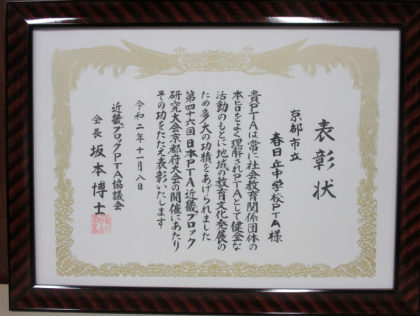 表彰状
京都市立
春日丘中学校PTA様
貴PTAは常に社会教育関係団体の
本旨をよく理解されPTAとして健全な
活動のもとに地域の教育文化発展の
ため多大の功績をあげられました
第四十六回日本PTA近畿ブロック
研究大会京都府大会の開催にあたり
その功をたたえ表彰いたします
令和二年十一月八日
近畿ブロックPTA協議会
会長 坂本博士